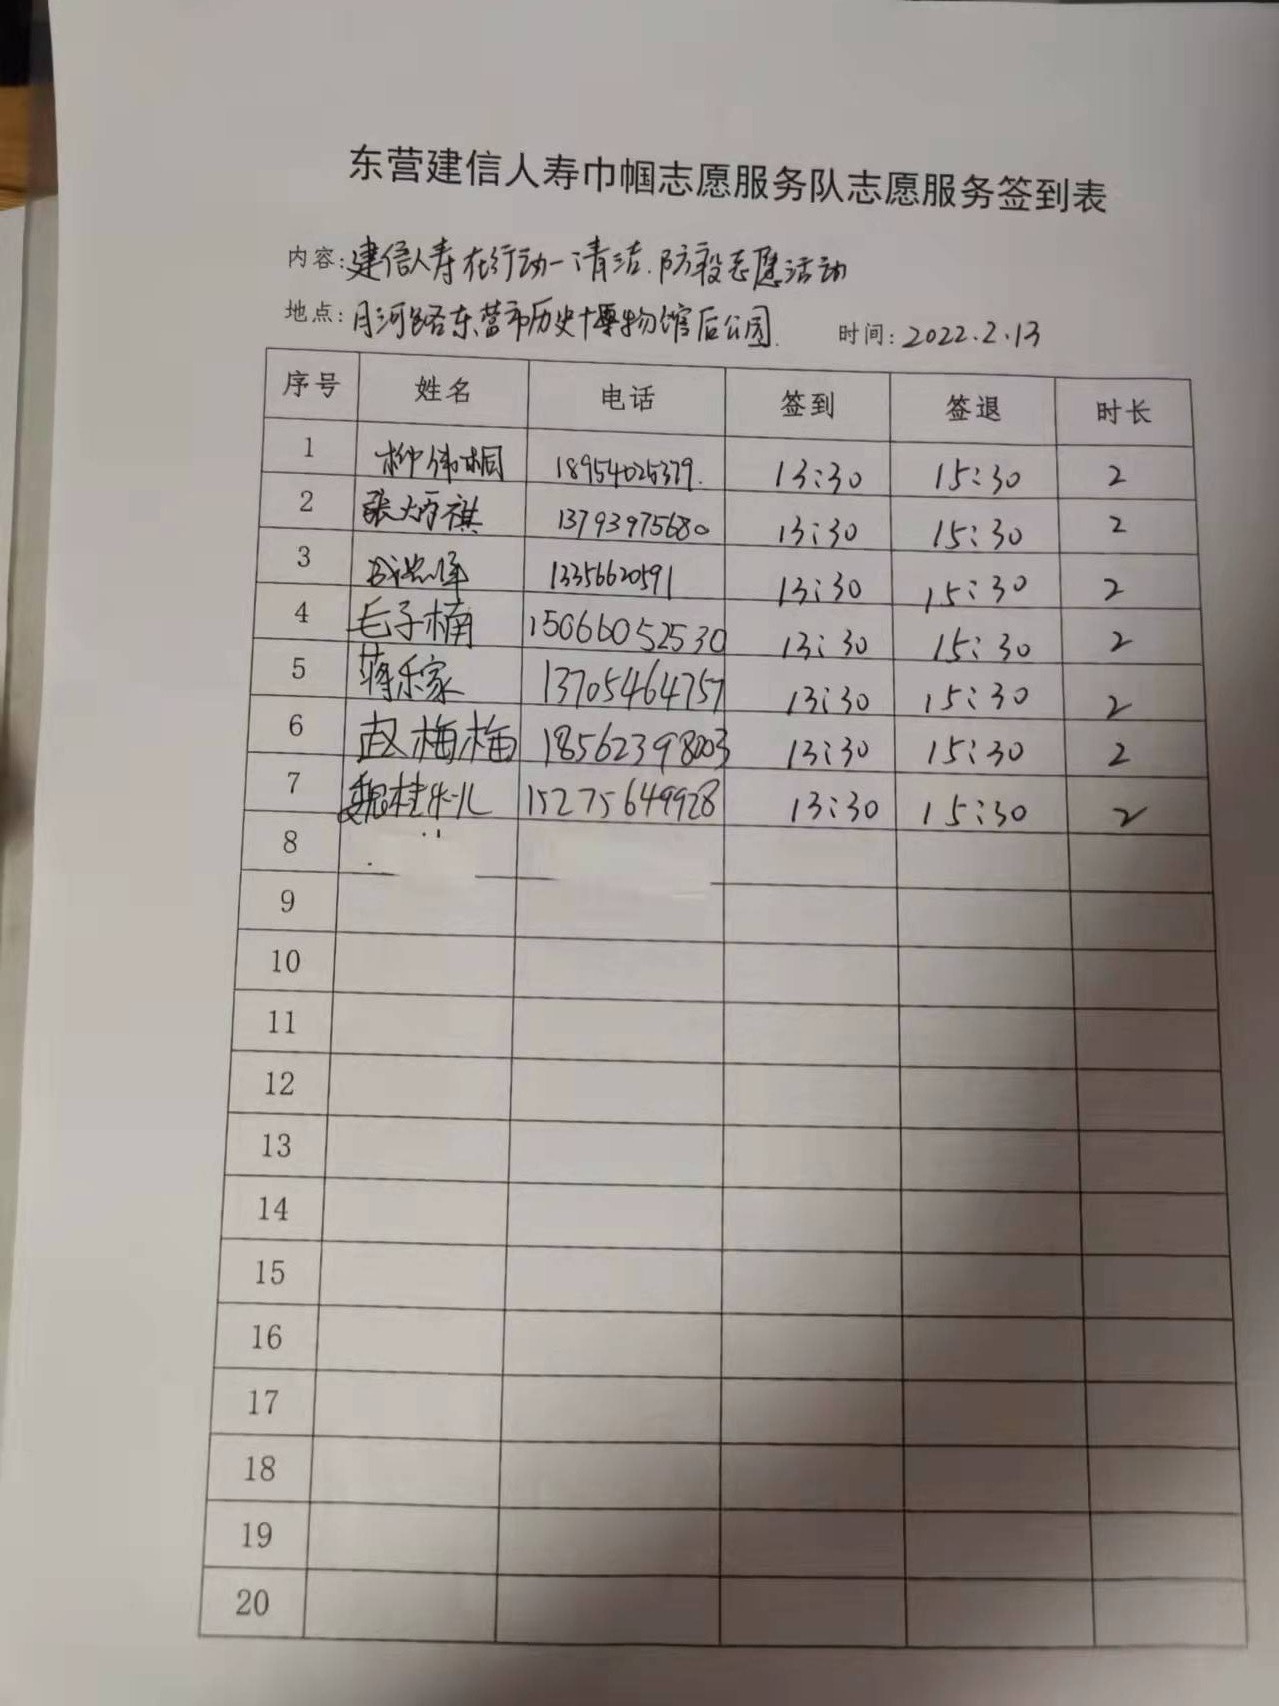 东营建信人寿巾帼志愿服务队志愿服务签到表
内容:建信人寿在行动一清洁.防疫志愿活动
地点:月河路东营市历史博物馆后公园. 时间:2022.2.13
序号 姓名 电话 签到 签退 时长
1 柳伟桐 18954025379. 13:30 15:30 2
2 张 祺 13793975680 13:30 15:30 2
3 13356620591 13:30 15:30 2
4 毛子楠 15066052530 13:30 15:30 2
5 蒋乐家 13705464757 13:30 15:30 2
6 赵梅梅 18562398003 13:30 15:30 2
7 魏桂 15275649928 13:30 15:30 2
8
9
10
11
12
13
14
15
16
17
18
19
20